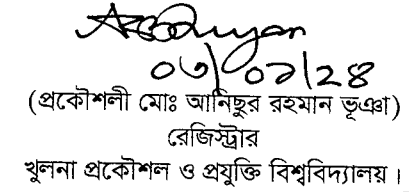 ০৬/০১/২৪
(প্রকৌশলী মোঃ আনিছুর রহমান ভূঞা)
রেজিস্ট্রার
খুলনা প্রকৌশল ও প্রযুক্তি বিশ্ববিদ্যালয়।